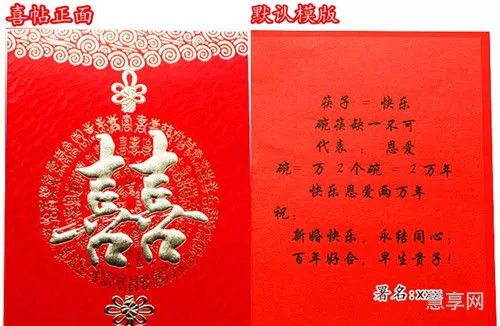 喜帖正面
默认模版
囍
筷子 = 快乐
碗筷缺一不可
代表：恩爱
碗=万 2个碗=2万年
快乐恩爱两万年
祝：
新婚快乐，永结同心；
百年好合，早生贵子！
署名:xxx
慧享网